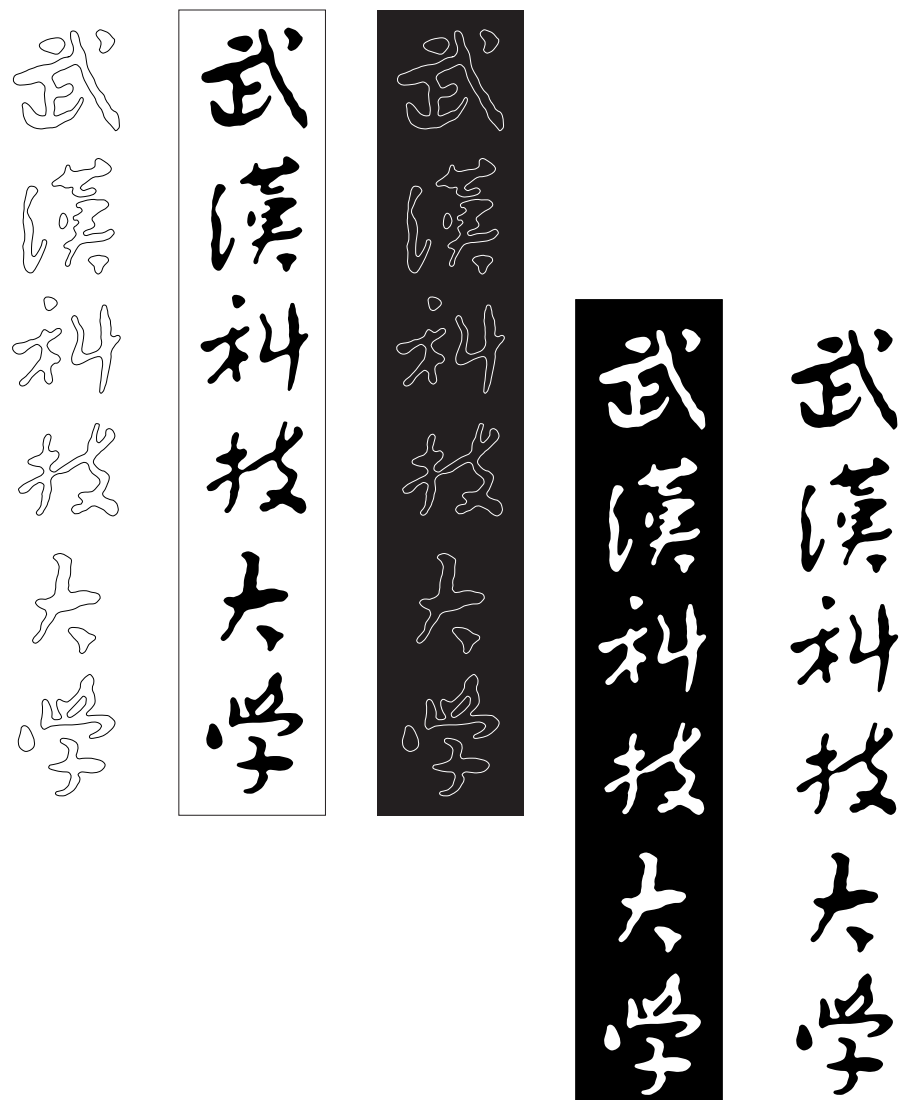 武漢科技大学
武漢科技大学
武漢科技大学
武漢科技大学
武漢科技大学